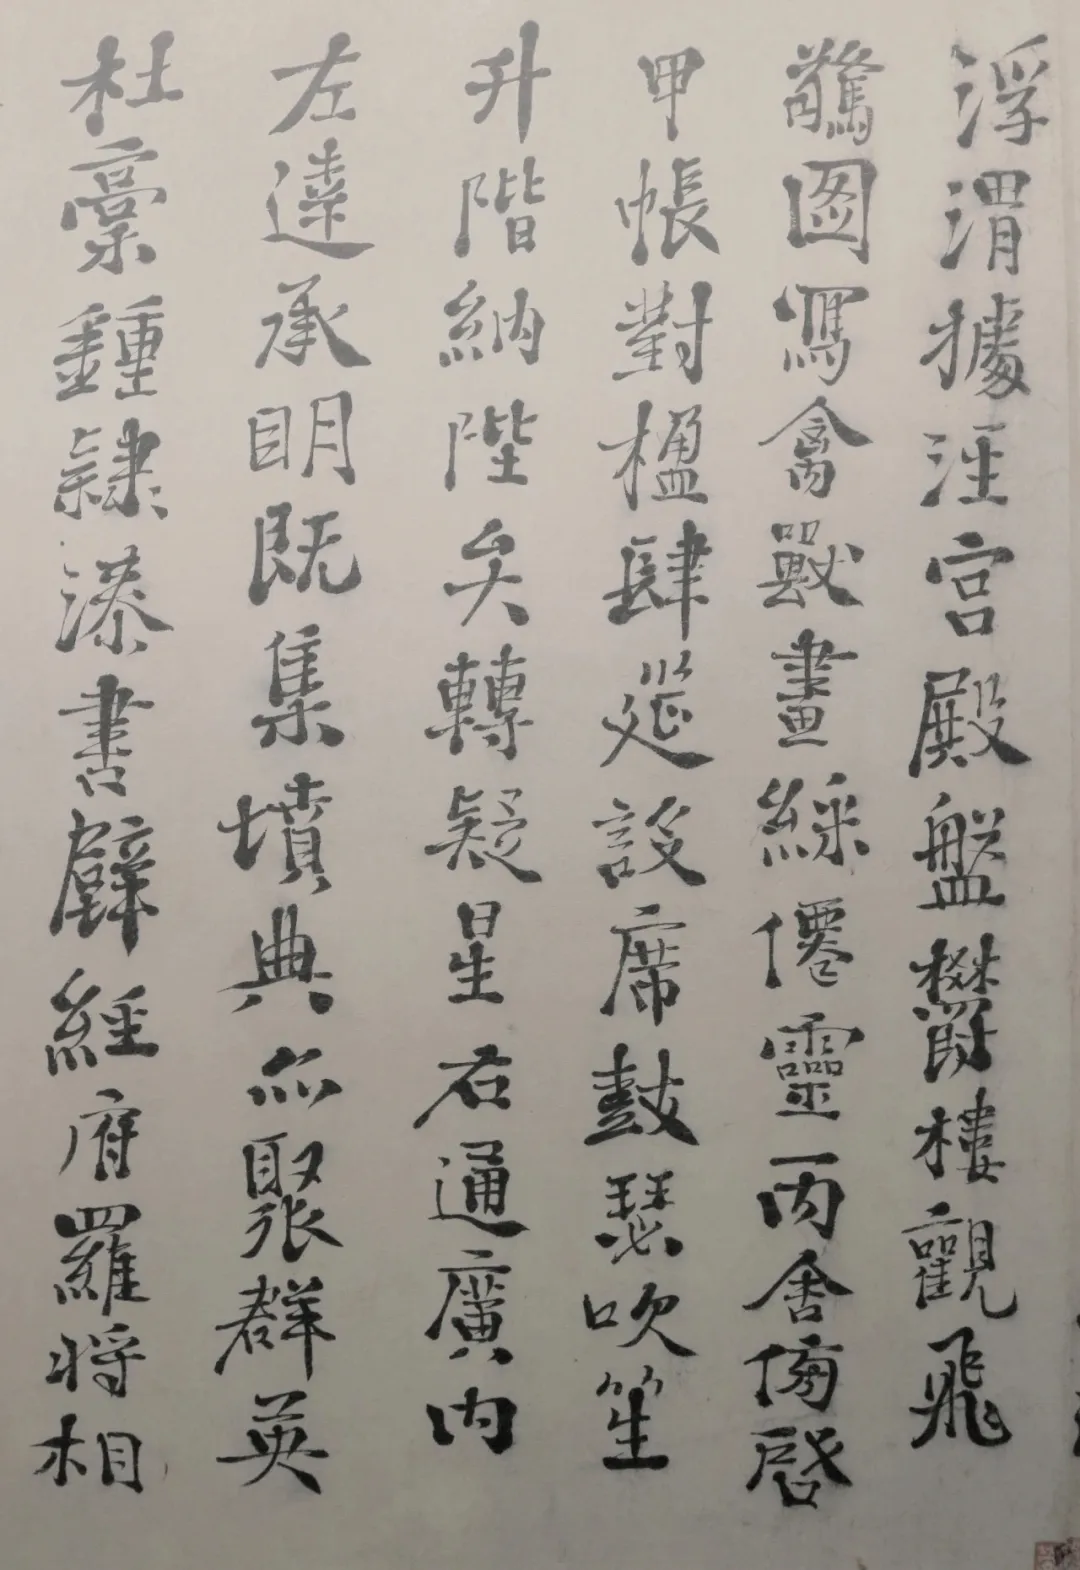 浮渭據涇宮殿盤欝樓觀飛
驚圖寫禽獸畫綵僊靈丙舍傍啓
甲帳對楹肆筵設席鼓瑟吹笙
升階納陛弁轉疑星右通廣內
左達承明既集墳典亦聚群英
杜稾鍾隸漆書壁經府羅將相